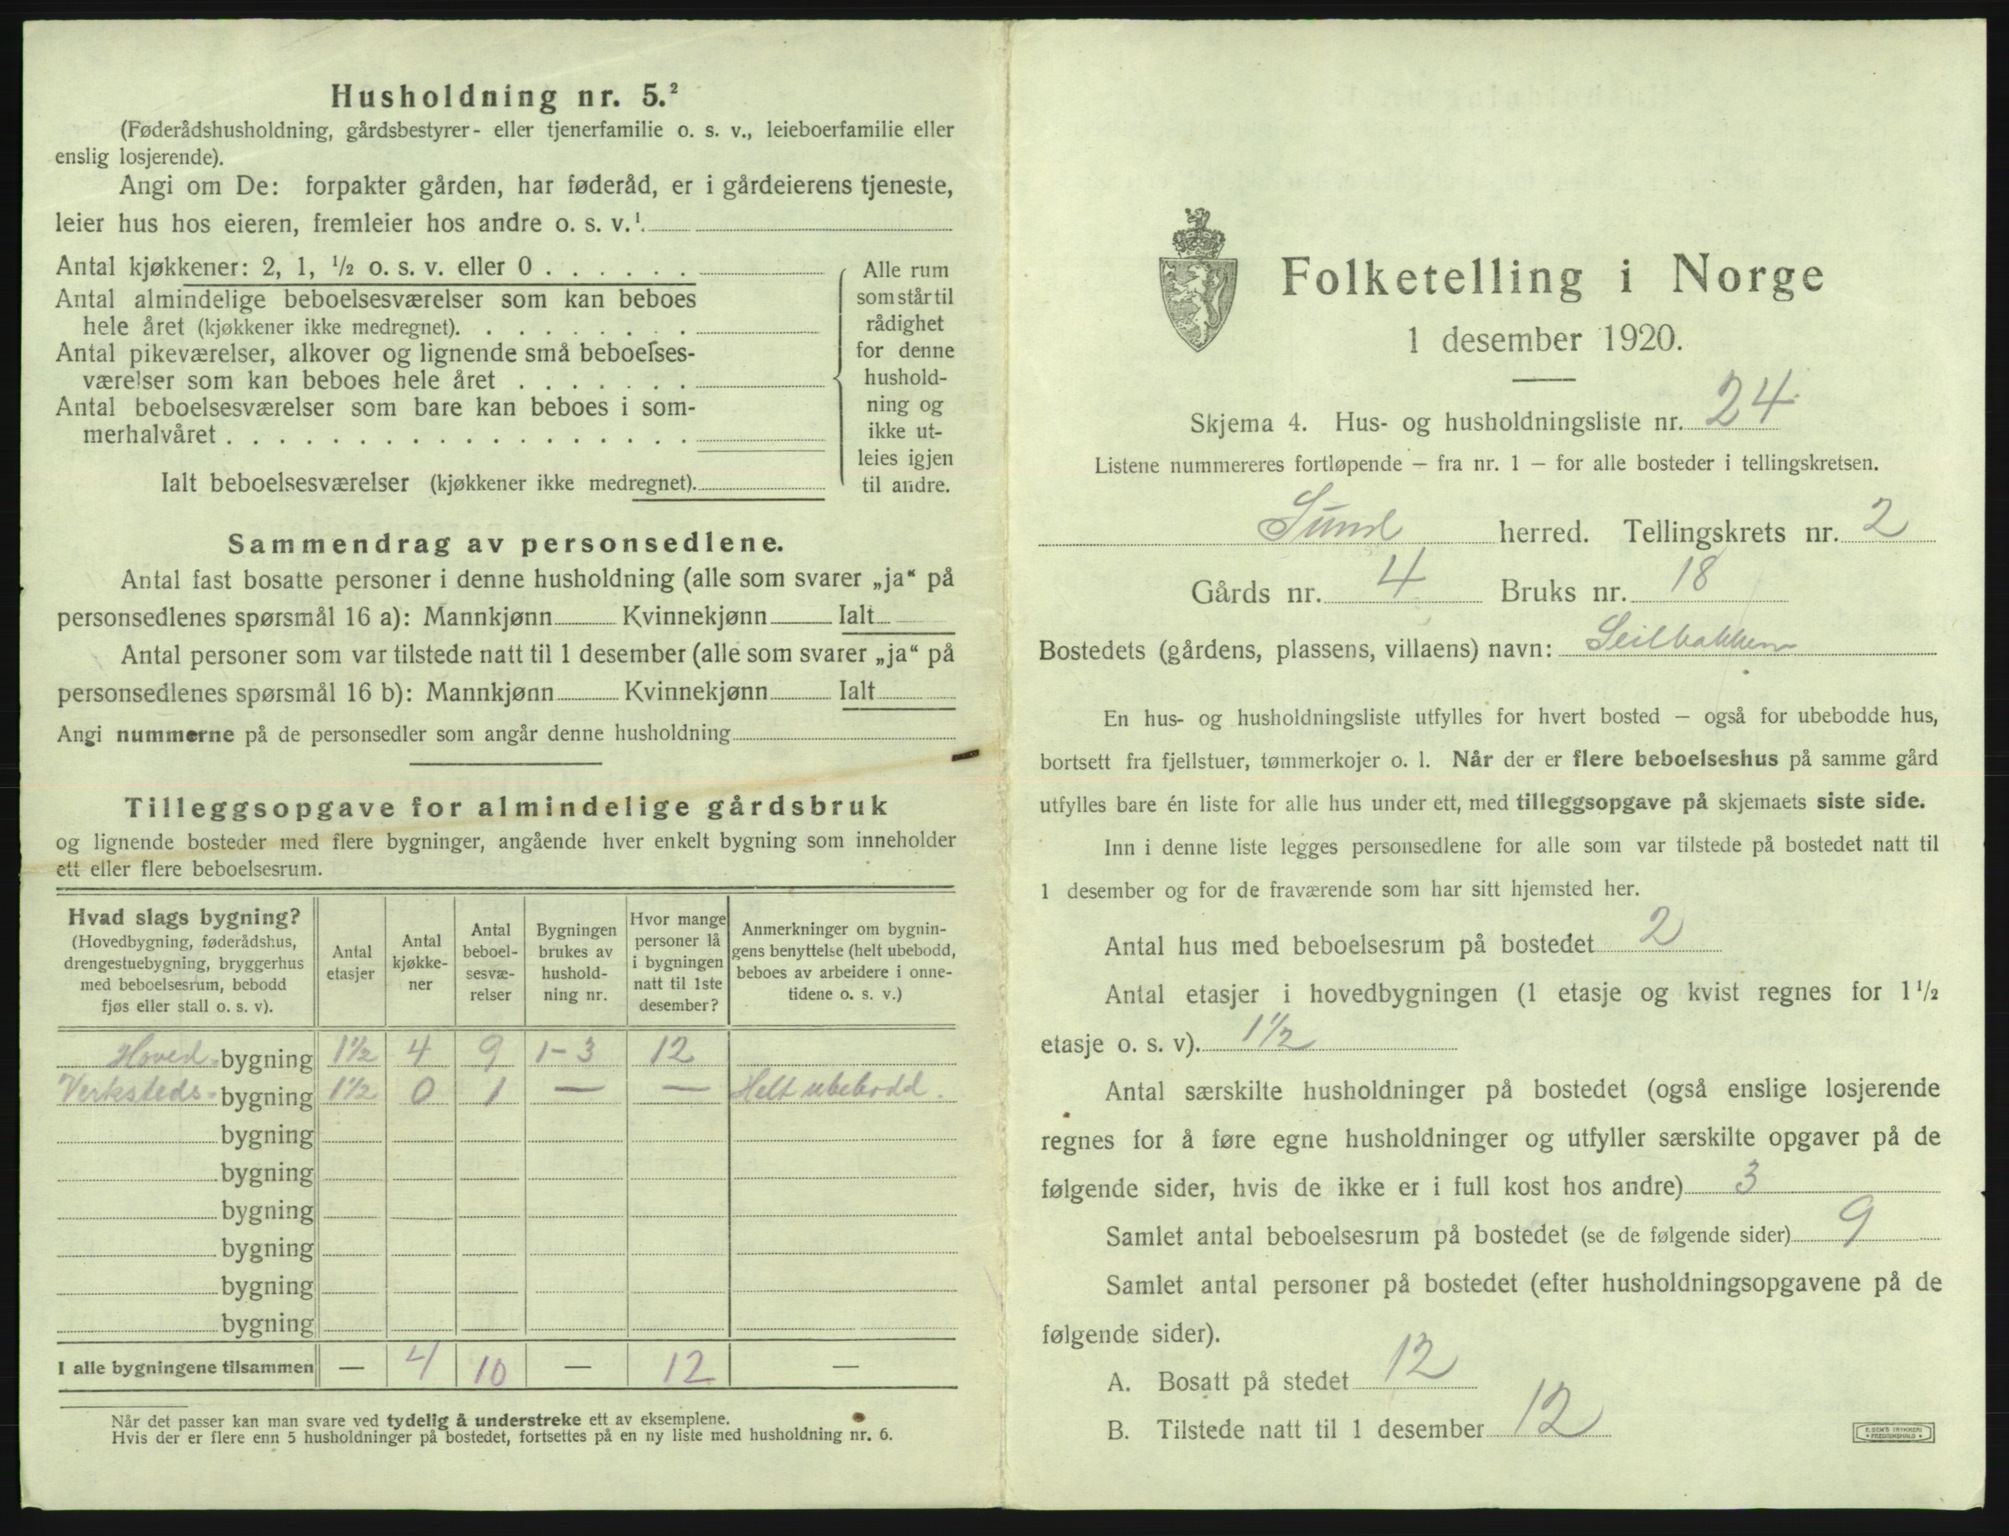 Husholdning nr. 5.²
(Føderådshusholdning, gårdsbestyrer- eller tjenerfamilie o. s. v., leieboerfamilie eller
enslig losjerende).
Angi om De: forpakter gården, har føderåd, er i gårdeierens tjeneste,
leier hus hos eieren, fremleier hos andre o. s. v.¹
Antal kjøkkener: 2, 1, ½ o. s. v. eller 0 . . . . . .
Antal almindelige beboelsesværelser som kan beboes
hele året (kjøkkener ikke medregnet). . . . . . . . .
Antal pikeværelser, alkover og lignende små beboelses-
værelser som kan beboes hele året . . . . . . .
Antal beboelsesværelser som bare kan beboes i som-
merhalvåret . . . . . . . . . . . . . . . . . .
Ialt beboelsesværelser (kjøkkener ikke medregnet).
Alle rum
som står til
rådighet
for denne
hushold-
ning og
ikke ut-
leies igjen
til andre.
Sammendrag av personsedlene.
Antal fast bosatte personer i denne husholdning (alle som svarer „ja“ på
personsedlenes spørsmål 16 a): Mannkjønn Kvinnekjønn Ialt
Antal personer som var tilstede natt til 1 desember (alle som svarer „ja“ på
personsedlenes spørsmål 16 b): Mannkjønn Kvinnekjønn Ialt
Angi nummerne på de personsedler som angår denne husholdning
Tilleggsopgave for almindelige gårdsbruk
og lignende bosteder med flere bygninger, angående hver enkelt bygning som inneholder
ett eller flere beboelsesrum.
Hvad slags bygning?
(Hovedbygning, føderådshus,
drengestuebygning, bryggerhus
med beboelsesrum, bebodd
fjøs eller stall o. s. v).
Antal
etasjer
Antal
kjøkke-
ner
Antal
beboel-
sesvæ-
relser
Bygningen
brukes av
hushold-
ning nr.
Hvor mange
personer lå
i bygningen
natt til 1ste
desember?
Anmerkninger om bygnin-
gens benyttelse (helt ubebodd,
beboes av arbeidere i onne-
tidene o. s. v.)
Hoved-bygning 1½ 4 9 1-3 12
Verksteds-bygning 1½ 0 1 — — Helt ubebodd.
bygning
bygning
bygning
bygning
bygning
bygning
I alle bygningene tilsammen — 4 10 — 12 —
Når det passer kan man svare ved tydelig å understreke ett av eksemplene.
Hvis der er flere enn 5 husholdninger på bostedet, fortsettes på en ny liste med husholdning nr. 6.
Folketelling i Norge
1 desember 1920.
Skjema 4. Hus- og husholdningsliste nr. 24
Listene nummereres fortløpende — fra nr. 1 — for alle bosteder i tellingskretsen.
Sund herred. Tellingskrets nr. 2
Gårds nr. 4 Bruks nr. 18
Bostedets (gårdens, plassens, villaens) navn: Seilbakken
En hus- og husholdningsliste utfylles for hvert bosted — også for ubebodde hus,
bortsett fra fjellstuer, tømmerkojer o. l. Når der er flere beboelseshus på samme gård
utfylles bare én liste for alle hus under ett, med tilleggsopgave på skjemaets siste side.
Inn i denne liste legges personsedlene for alle som var tilstede på bostedet natt til
1 desember og for de fraværende som har sitt hjemsted her.
Antal hus med beboelsesrum på bostedet 2
Antal etasjer i hovedbygningen (1 etasje og kvist regnes for 1½
etasje o. s. v). 1½
Antal særskilte husholdninger på bostedet (også enslige losjerende
regnes for å føre egne husholdninger og utfyller særskilte opgaver på de
følgende sider, hvis de ikke er i full kost hos andre) 3
Samlet antal beboelsesrum på bostedet (se de følgende sider) 9
Samlet antal personer på bostedet (efter husholdningsopgavene på de
følgende sider).
A. Bosatt på stedet 12
B. Tilstede natt til 1 desember 12